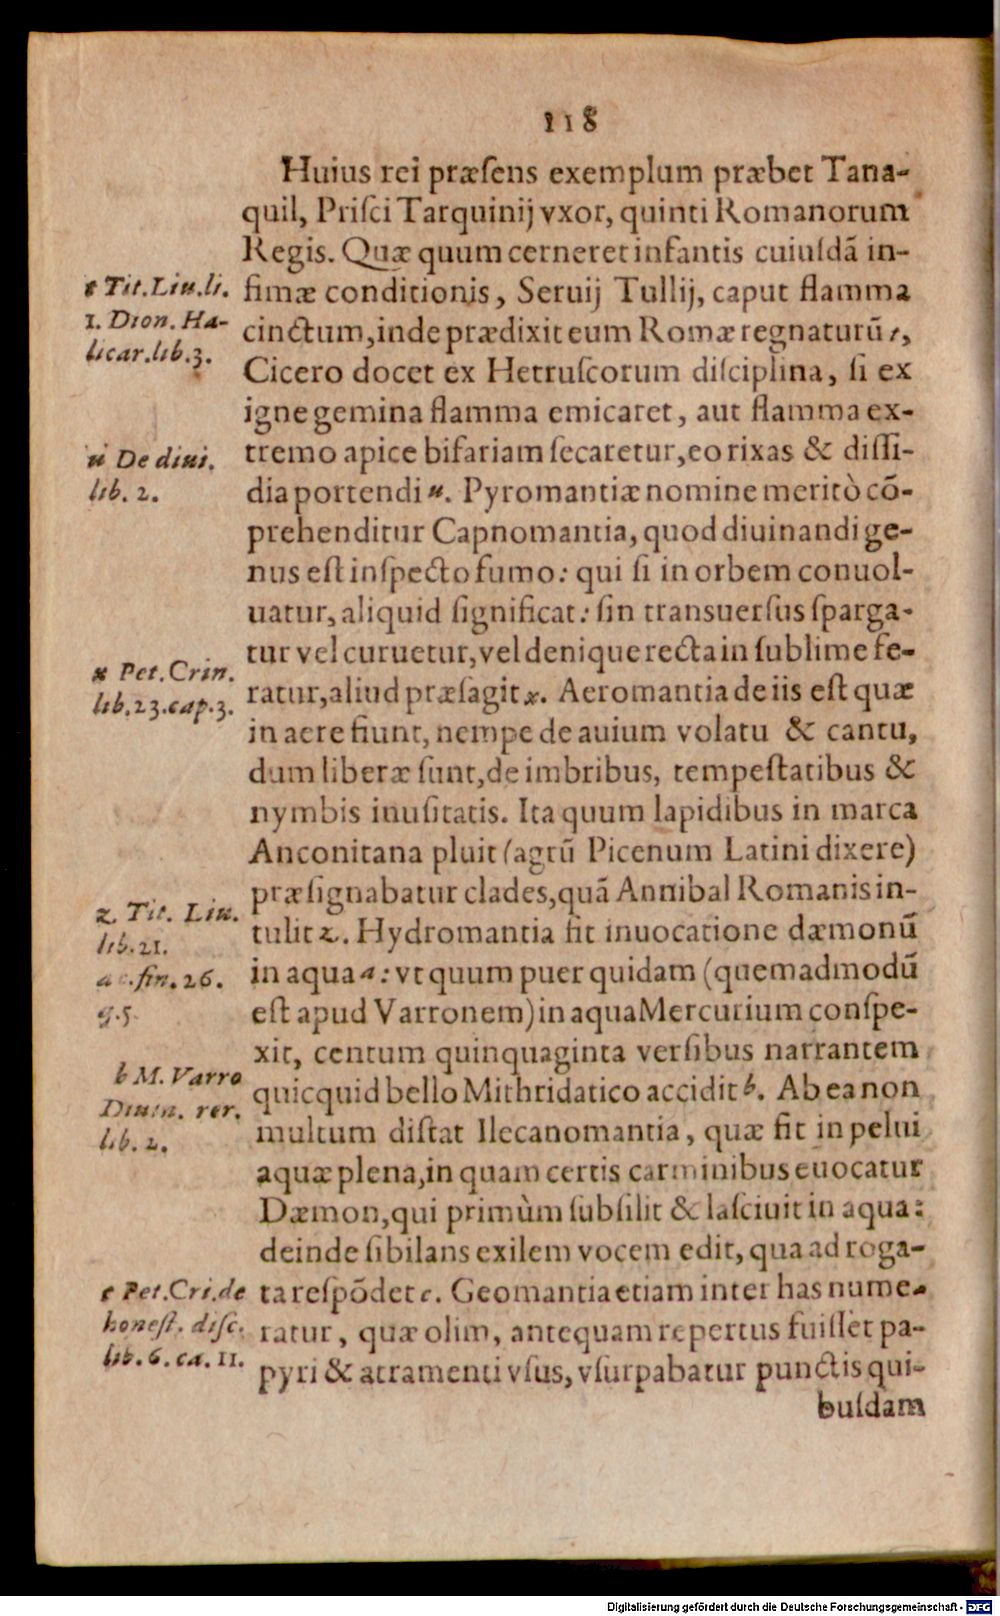 118
Huius rei præſens exemplum præbet Tana-
quil, Priſci Tarquinij vxor, quinti Romanorum
Regis. Quæ quum cerneret infantis cuiuſdã in-
fimæ conditionis, Seruij Tullij, caput flamma
cinctum, inde prædixit eum Romæ regnaturũ t,
Cicero docet ex Hetruſcorum diſciplina, ſi ex
igne gemina flamma emicaret, aut flamma ex-
tremo apice bifariam ſecaretur, eo rixas & diſſi-
dia portendi u. Pyromantiæ nomine meritò cõ-
prehenditur Capnomantia, quod diuinandi ge-
nus eſt inſpecto fumo: qui ſi in orbem conuol-
uatur, aliquid ſignificat: ſin transuerſus ſparga-
tur vel curuetur, vel denique recta in ſublime fe-
ratur, aliud præſagit x. Aeromantia de iis eſt quæ
in aere fiunt, nempe de auium volatu & cantu,
dum liberæ ſunt, de imbribus, tempeſtatibus &
nymbis inuſitatis. Ita quum lapidibus in marca
Anconitana pluit (agrũ Picenum Latini dixere)
præſignabatur clades, quã Annibal Romanis in-
tulit z. Hydromantia fit inuocatione dæmonũ
in aqua a: vt quum puer quidam (quemadmodũ
eſt apud Varronem) in aqua Mercurium conſpe-
xit, centum quinquaginta verſibus narrantem
quicquid bello Mithridatico accidit b. Ab ea non
multum diſtat Ilecanomantia, quæ fit in pelui
aquæ plena, in quam certis carminibus euocatur
Dæmon, qui primùm ſubſilit & laſciuit in aqua:
deinde ſibilans exilem vocem edit, qua ad roga-
ta reſpõdet c. Geomantia etiam inter has nume-
ratur, quæ olim, antequam repertus fuiſſet pa-
pyri & atramenti vſus, vſurpabatur punctis qui-
buſdam
t Tit. Liu. li.
1. Dion. Ha-
licar. lib. 3.
u De diui.
lib. 2.
x Pet. Crin.
lib. 23. cap. 3.
z. Tit. Liu.
lib. 21.
a c. ſin. 26.
q. 5.
b M. Varro
Diuin. rer.
lib. 2.
c Pet. Cri. de
honeſt. diſc.
lib. 6. ca. 11.
Digitalisierung gefördert durch die Deutsche Forschungsgemeinschaft - DFG